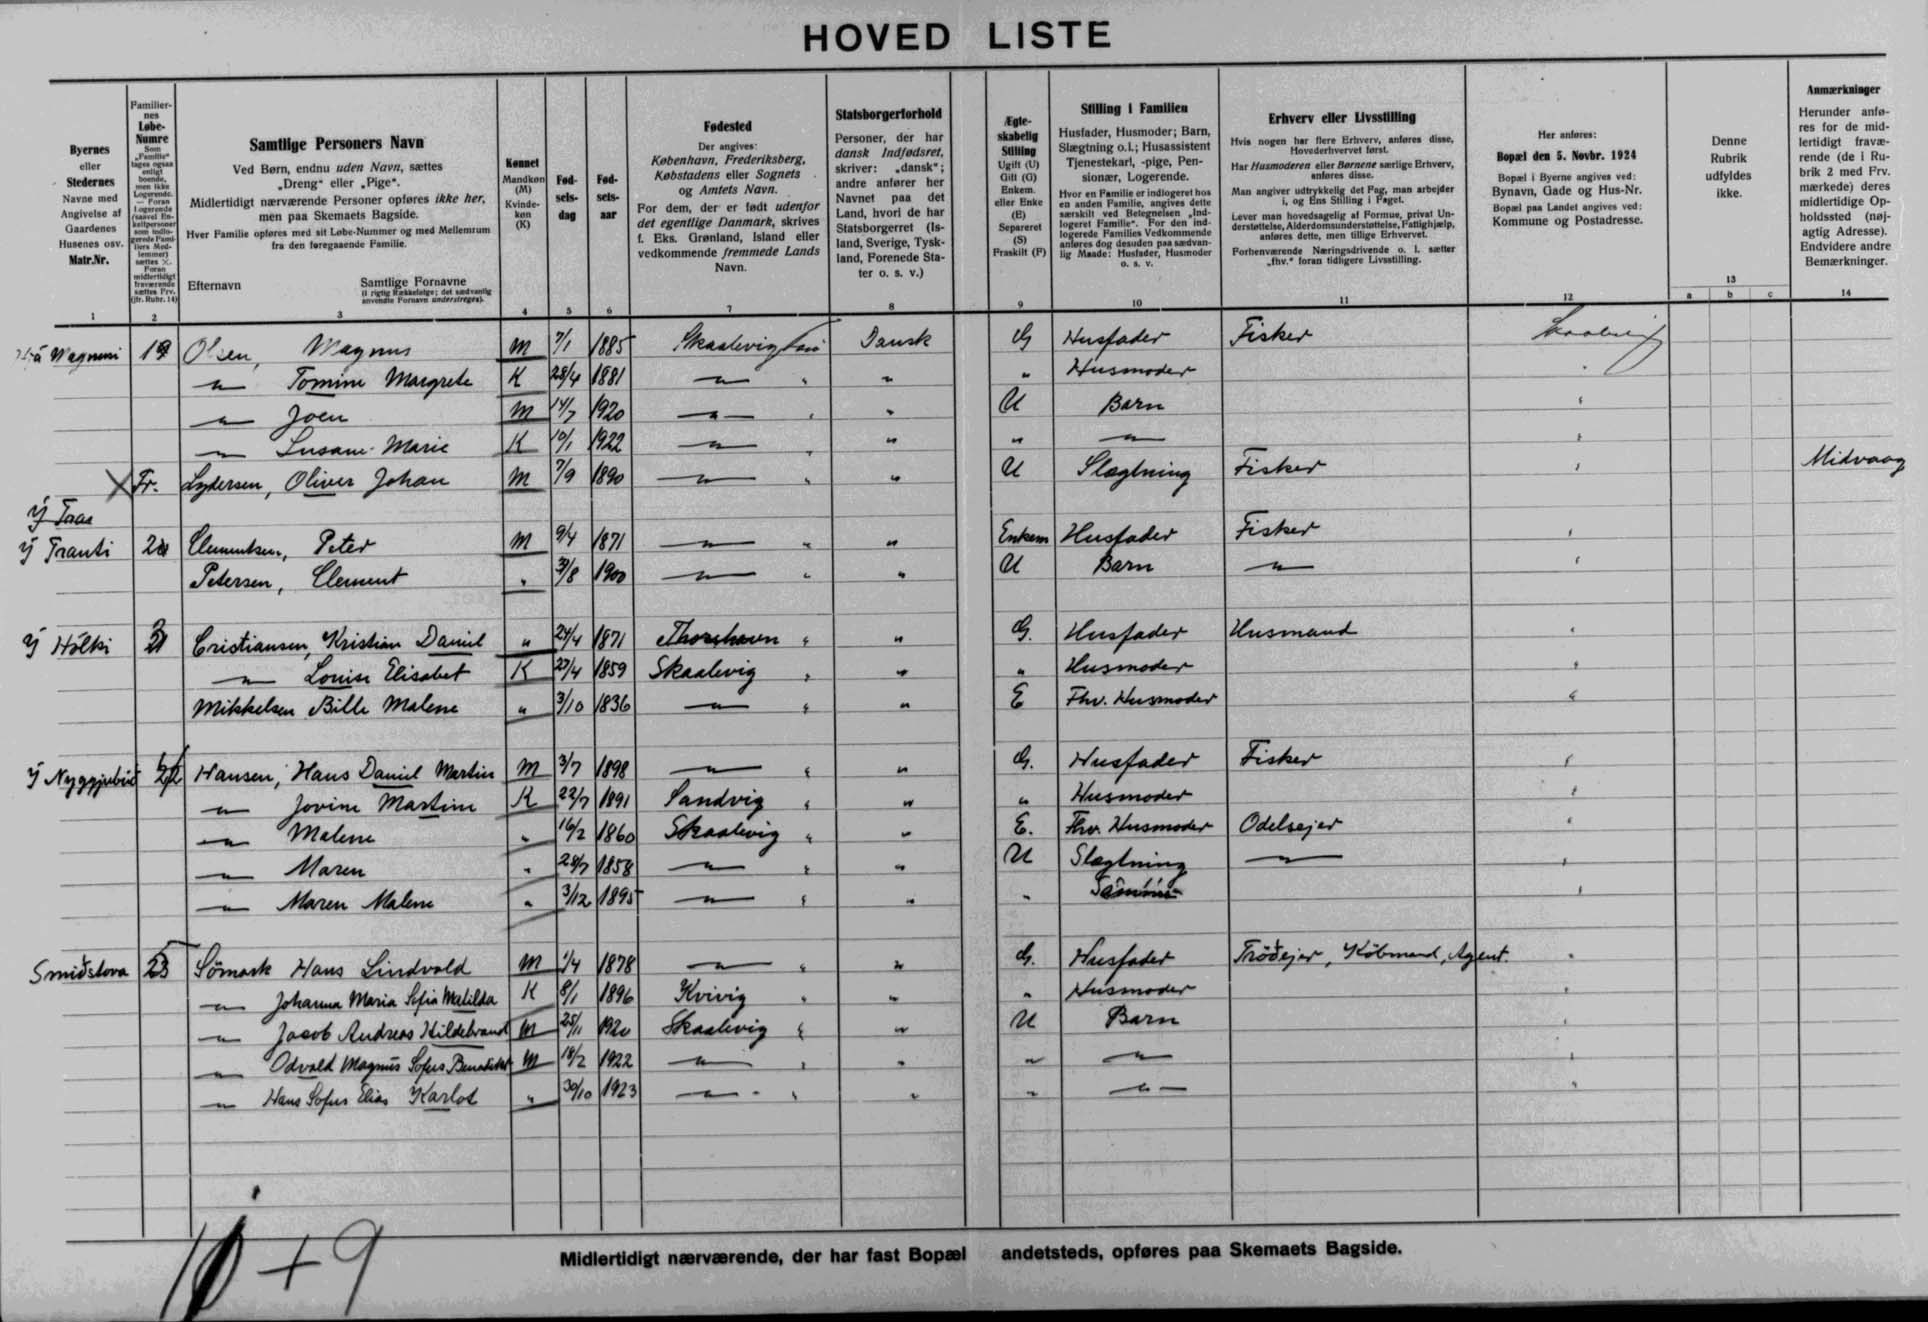 HOVED LISTE
Byernes
eller
Stedernes
Navne med
Angivelse af
Gaardenes
Husenes osv.
Matr.Nr.
1
Familier-
nes
Løbe-
Numre
Som
„Familie“
tages ogsaa
enligt
boende,
men ikke
Logerende.
— Foran
Logerende
(saavel En-
keltpersoner
som indlo-
gerede Fami-
liers Med-
lemmer)
sættes X.
Foran
midlertidigt
fraværende
sættes Frv.
(jfr. Rubr. 14)
2
Samtlige Personers Navn
Ved Børn, endnu uden Navn, sættes
„Dreng“ eller „Pige“.
Midlertidigt nærværende Personer opføres ikke her,
men paa Skemaets Bagside.
Hver Familie opføres med sit Løbe-Nummer og med Mellemrum
fra den foregaaende Familie.
Efternavn Samtlige Fornavne
(i rigtig Rækkefølge; det sædvanlig
anvendte Fornavn understreges).
3
Kønnet
Mandkøn
(M)
Kvinde-
køn
(K)
4
Fød-
sels-
dag
5
Fød-
sels-
aar
6
Fødested
Der angives:
København, Frederiksberg,
Købstadens eller Sognets
og Amtets Navn.
For dem, der er født udenfor
det egentlige Danmark, skrives
f. Eks. Grønland, Island eller
vedkommende fremmede Lands
Navn.
7
Statsborgerforhold
Personer, der har
dansk Indfødsret,
skriver: „dansk“;
andre anfører her
Navnet paa det
Land, hvori de har
Statsborgerret (Is-
land, Sverige, Tysk-
land, Forenede Sta-
ter o. s. v.)
8
Ægte-
skabelig
Stilling
Ugift (U)
Gift (G)
Enkem.
eller Enke
(E)
Separeret
(S)
Fraskilt (F)
9
Stilling i Familien
Husfader, Husmoder; Barn,
Slægtning o.l.; Husassistent
Tjenestekarl, -pige, Pen-
sionær, Logerende.
Hvor en Familie er indlogeret hos
en anden Familie, angives dette
særskilt ved Betegnelsen „Ind-
logeret Familie“. For den ind-
logerede Families Vedkommende
anføres dog desuden paa sædvan-
lig Maade: Husfader, Husmoder
o. s. v.
10
Erhverv eller Livsstilling
Hvis nogen har flere Erhverv, anføres disse,
Hovederhvervet først.
Har Husmoderen eller Børnene særlige Erhverv,
anføres disse.
Man angiver udtrykkelig det Fag, man arbejder
i, og Ens Stilling i Faget.
Lever man hovedsagelig af Formue, privat Un-
derstøttelse, Alderdomsunderstøttelse, Fattighjælp,
anføres dette, men tillige Erhvervet.
Forhenværende Næringsdrivende o. l. sætter
„fhv.“ foran tidligere Livsstilling.
11
Her anføres:
Bopæl den 5. Novbr. 1924
Bopæl i Byerne angives ved:
Bynavn, Gade og Hus-Nr.
Bopæl paa Landet angives ved:
Kommune og Postadresse.
12
Denne
Rubrik
udfyldes
ikke.
13
a b c
Anmærkninger
Herunder anfø-
res for de mid-
lertidigt fravæ-
rende (de i Ru-
brik 2 med Frv.
mærkede) deres
midlertidige Op-
holdssted (nøj-
agtig Adresse).
Endvidere andre
Bemærkninger.
14
Magnusi 19 Olsen, Magnus M 7/1 1885 Skaalevig Dansk G Husfader Fisker
" Tomine Margrete K 28/4 1881 " " " Husmoder "
" Joen M 14/7 1920 " " U Barn "
" Susanne Marie K 10/1 1922 " " " " "
X Fr. Lydersen, Oliver Johan M 7/9 1890 " " U Slægtning Fisker " Midvaag
Ý Traa
Ý Tranti Clementsen, Peter M 9/4 1871 " " Enkem Husfader Fisker "
Petersen, Clement " 31/8 1900 " " U Barn " "
Ý Hólki 21 Cristiansen, Kristian Daniel " 24/4 1871 Thorshavn " " G. Husfader Husmand "
" Louise Elisabet K 27/4 1859 Skaalevig " " " Husmoder "
Mikkelsen Bille Malene " 3/10 1836 " " " E Fhv. Husmoder "
Ý 22 Hansen, Hans Daniel Martin M 3/7 1898 " " " G. Husfader Fisker "
" Jovine Martine K 22/7 1891 Sandvig " " " Husmoder "
" Malene " 16/2 1860 Skaalevig " " E. Fhv. Husmoder Odelsejer "
" Maren " 28/7 1858 " " " U Slægtning " "
" Maren Malene " 3/12 1895 " " " " "
Smiðstova 23 Sömark Hans Lindvald M 1/4 1878 " " " G. Husfader Tröðejer, Köbmand, Agent. "
" Johanna Maria Sofia Matilda K 8/1 1896 Kvivig " " " Husmoder "
" Jacob Andreas Hildebrand M 25/11 1920 Skaalevig " " U Barn "
" Odvald Magnus Sofus Benedikt M 18/2 1922 " " " " " "
" Hans Sofus Elias Karlot " 30/10 1923 " " " " " "
+ 9
Midlertidigt nærværende, der har fast Bopæl andetsteds, opføres paa Skemaets Bagside.